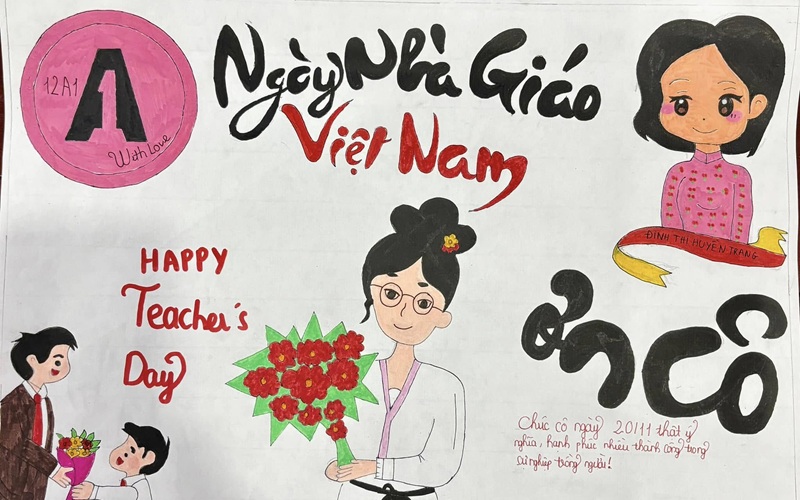 12A1
A1
With Love
Ngày Nhà Giáo
Việt Nam
ĐINH THỊ HUYỀN TRANG
HAPPY
Teacher's
Day
ơn Cô
Chúc cô ngày 20/11 thật ý
nghĩa, hạnh phúc nhiều thành công trong
sự nghiệp trồng người!